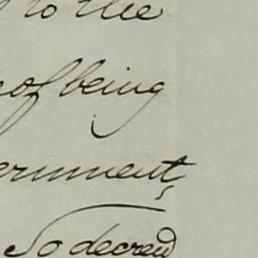 to the
of being
ernment,
So decreed